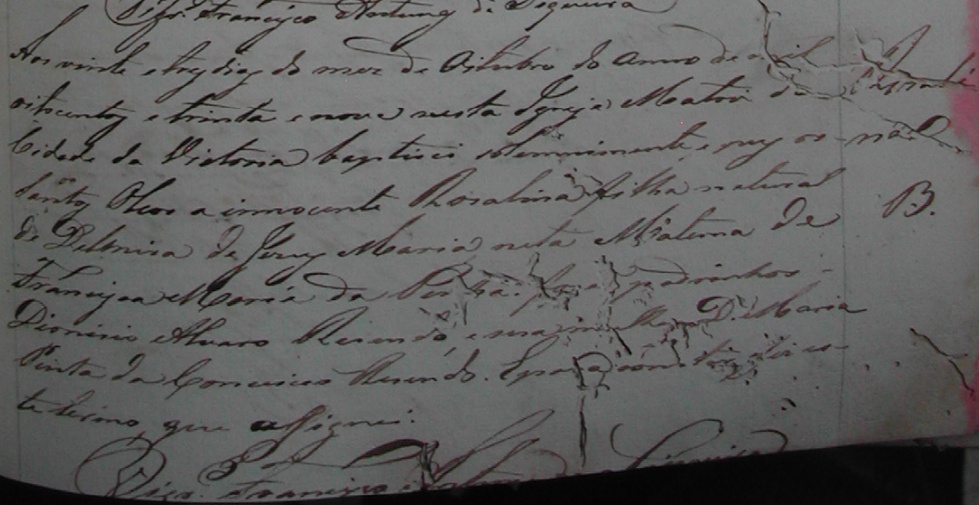 Vigr. Francisco Antunes de Siqueira
Aos vinte e tres dias do mez de Oitubro do Anno de mil
oitocentos e trinta e nove nesta Igreja Matriz da
Cidade da Victoria baptisei solemnimente, e puz os
Santos Oleos a innocente Rosalina filha natural
B.
de Delmira de Jesus Maria neta Materna de
Francisca Maria da padrinhos
Dionisio Alvaro Resendo, e sua D. Maria
Pinta da Conceicao Resendo. E para constar fiz es-
te termo, que assignei.
Vigr. Francisco de Siqueira